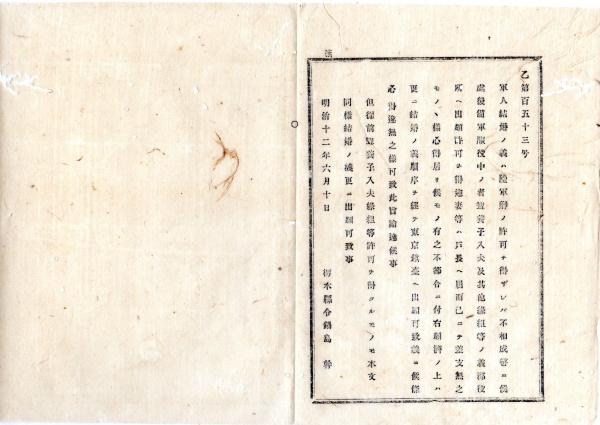 乙第百五十三号
軍人結婚ノ義ハ陸軍卿ノ許可ヲ得ザレバ不相成筈ニ候
処後備軍服役中ノ者聟養子入夫及其他縁組等ノ義郡役
所ヘ出願許可ヲ得迎妻等ハ戸長ヘ届而已ニテ差支無之
モノヽ様心得居候モノ有之不都合ニ付右願済ノ上ハ
更ニ結婚ノ義順序ヲ経テ東京鎮台ヘ出願可致義ニ候条
心得違無之様可致此旨諭達候事
但従前聟養子入夫縁組等許可ヲ得タルモノモ本文
同様結婚ノ義更ニ出願可致事
明治十二年六月十日
栃木縣令鍋島 幹